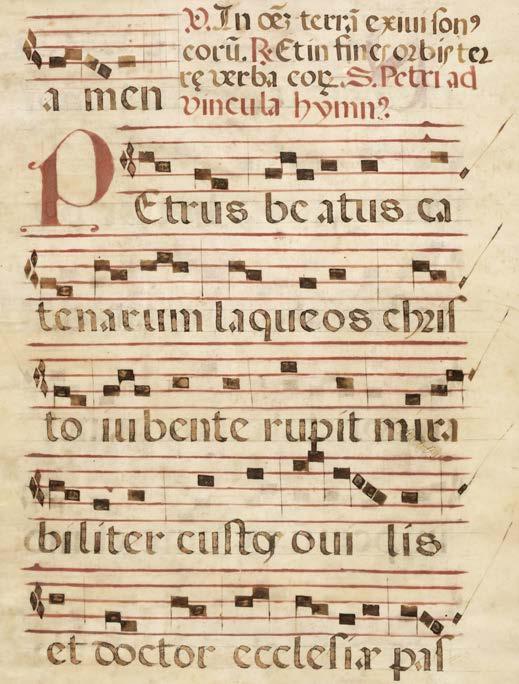 V. In oēs terrā exiuit sonꝰ
eorū. R. Et in fines orbis ter
rę verba eorꝝ. S. Petri ad
vincula hymnꝰ.
a men
PEtrus beatus ca
tenarum laqueos chris
to iubente rupit mira
biliter custos oui lis
et doctor ecclesiæ pas